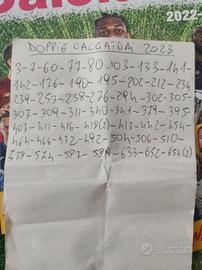 2022
DOPPIE CALCIATORI 2023
3-7-60-77-80-103-133-141-
142-176-190-195-202-212-234
239-253-258-276-294-302-305-
307-309-311-340-341-379-395-
407-411-416-418(2)-
464-466-472-492-504-506-510-
538-574-587-588-633-652-654(2)
Subito.it